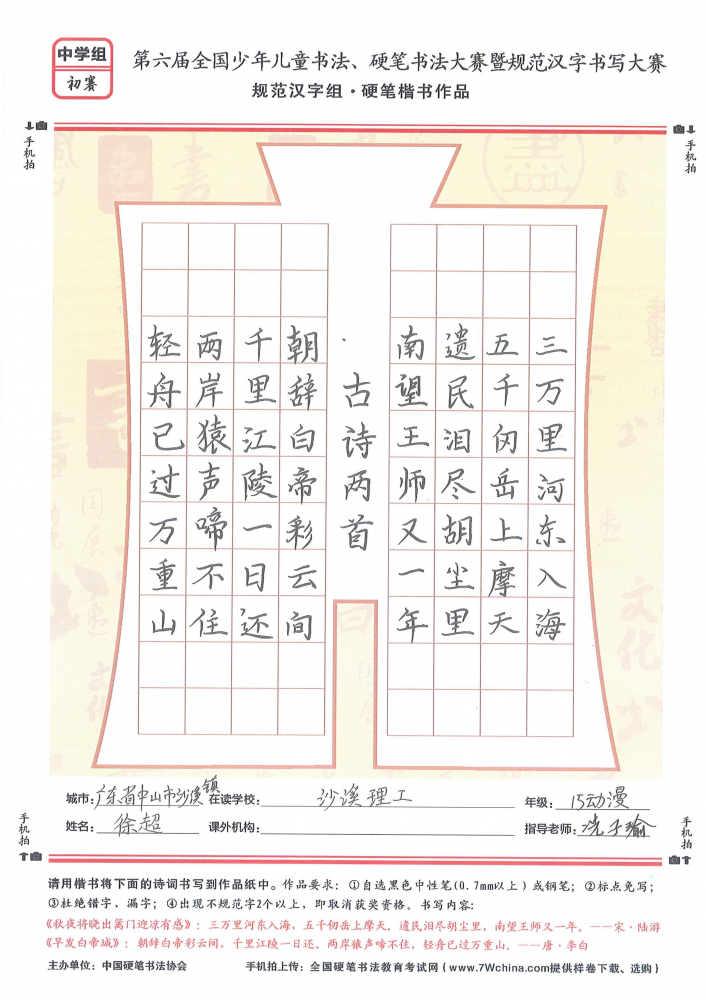 中学组
初赛
第六届全国少年儿童书法、硬笔书法大赛暨规范汉字书写大赛
规范汉字组·硬笔楷书作品
手机拍
手机拍
三万里河东入海
五千仞岳上摩天
遗民泪尽胡尘里
南望王师又一年
古诗两首
朝辞白帝彩云间
千里江陵一日还
两岸猿声啼不住
轻舟已过万重山
城市:广东省中山市沙溪镇 在读学校:沙溪理工 年级:15动漫
姓名:徐超 课外机构: 指导老师:冼子瑜
手机拍
手机拍
请用楷书将下面的诗词书写到作品纸中。作品要求:①自选黑色中性笔(0.7mm以上)或钢笔;②标点免写;
③杜绝错字、漏字;④出现不规范字2个以上,即取消获奖资格。书写内容:
《秋夜将晓出篱门迎凉有感》:三万里河东入海,五千仞岳上摩天。遗民泪尽胡尘里,南望王师又一年。——宋·陆游
《早发白帝城》:朝辞白帝彩云间,千里江陵一日还。两岸猿声啼不住,轻舟已过万重山。——唐·李白
主办单位:中国硬笔书法协会 手机拍上传:全国硬笔书法教育考试网(www.7Wchina.com提供样卷下载、选购)